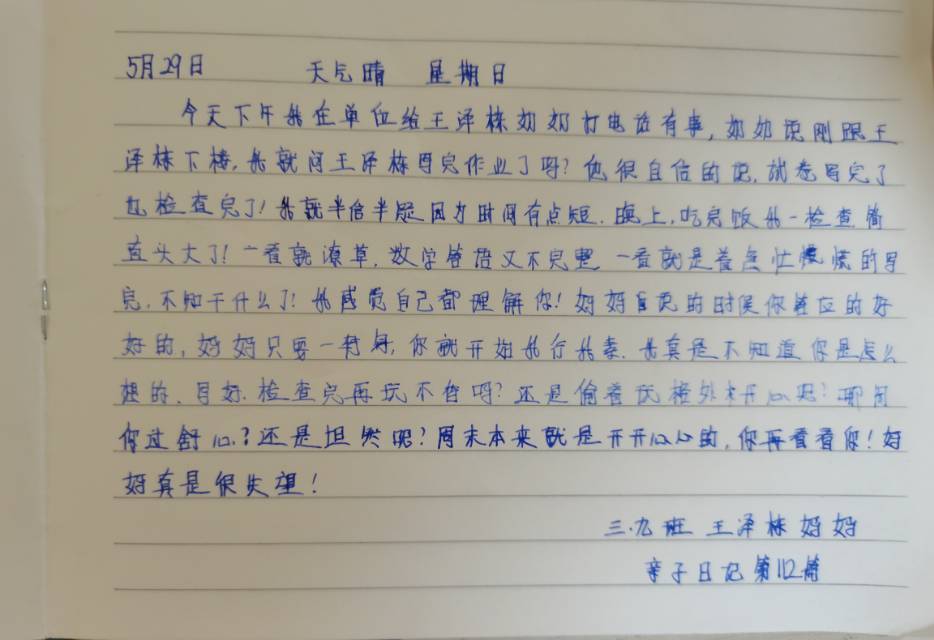 5月29日 天气晴 星期日
今天下午我在单位给王泽栋奶奶打电话有事，奶奶说刚跟王
泽栋下楼，我就问王泽栋写完作业了吗？他很自信的说，试卷写完了
也检查完了！我就半信半疑因为时间有点短．晚上，吃完饭我一检查简
直头大了！一看就潦草，数学答语又不完整 一看就是着急忙慌慌的写
完，不知干什么了！我感觉自己都理解你！妈妈每说的时候你答应的好
好的，妈妈只要一转身，你就开始我行我素．我真是不知道你是怎么
想的、写好．检查完再玩不香吗？还是偷着玩格外开心呢？那问
你过舒心？还是坦然呢？周末本来就是开开心心的，你再看看你！妈
妈真是很失望！
三．九班 王泽栋妈妈
亲子日记第112篇